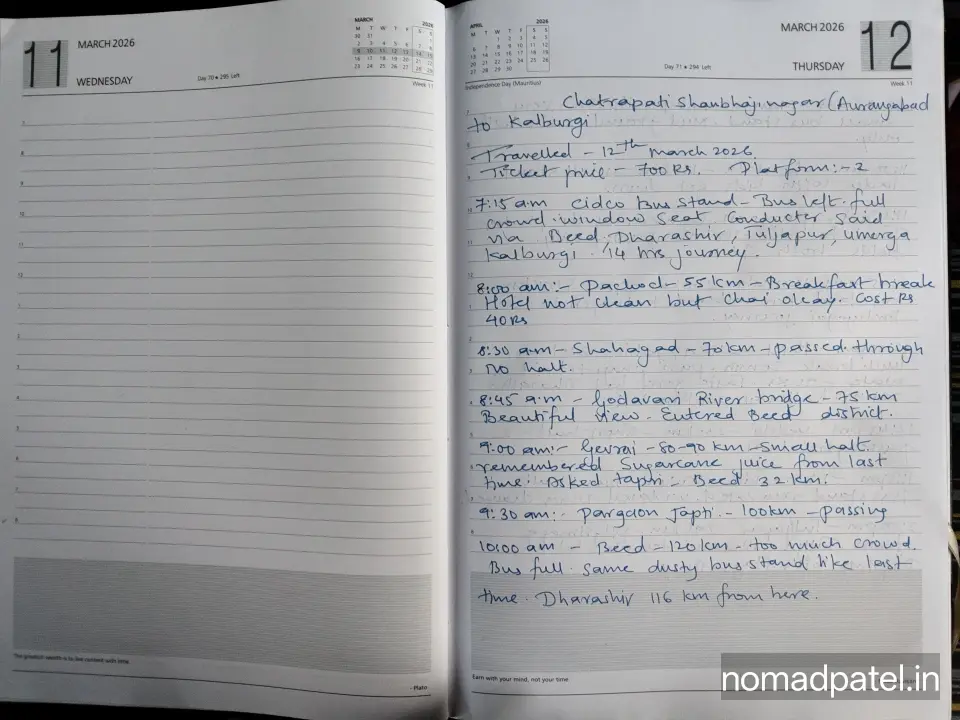 11
MARCH 2026
WEDNESDAY
Day 70 • 295 Left
Week 11
MARCH 2026
M T W T F S S
30 31 1
2 3 4 5 6 7 8
9 10 11 12 13 14 15
16 17 18 19 20 21 22
23 24 25 26 27 28 29
The greatest wealth is to live content with little
- Plato
APRIL 2026
M T W T F S S
1 2 3 4 5
6 7 8 9 10 11 12
13 14 15 16 17 18 19
20 21 22 23 24 25 26
27 28 29 30
MARCH 2026
12
THURSDAY
Day 71 • 294 Left
Independence Day (Mauritius)
Week 11
Chatrapati Shambhajinagar (Aurangabad
to Kalburgi
Travelled - 12th March 2026
Ticket price - 700 Rs. Platform:- 2
7:15 am cidco Bus Stand - Bus left full
crowd. window Seat Conducter said
via Beed, Dharashir, Tuljapur, umerga
Kalburgi. 14 hrs journey.
8:00 am:- Pachod - 55 km - Breakfast break
Hotel not clean but chai okay. Cost Rs
40 Rs
8:30 a.m - Shahagad - 70 km - passed through
no halt.
8:45 a.m - Godavari River bridge - 75 km
Beautiful View - Entered Beed district.
9:00 am:- Gevrai - 80-90 km - small halt.
remembered Sugarcane juice from last
time. Asked - Beed 32 km.
9:30 am:- Pargaon Japti - 100km - passing
10:00 am - Beed - 120 km - too much crowd.
Bus full. same dusty bus stand like last
time. Dharashir 116 km from here.
Earn with your mind, not your time
nomadpatel.in